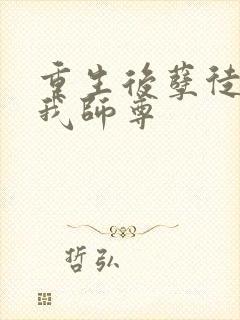 重生後孽徒
我師尊
哲弘